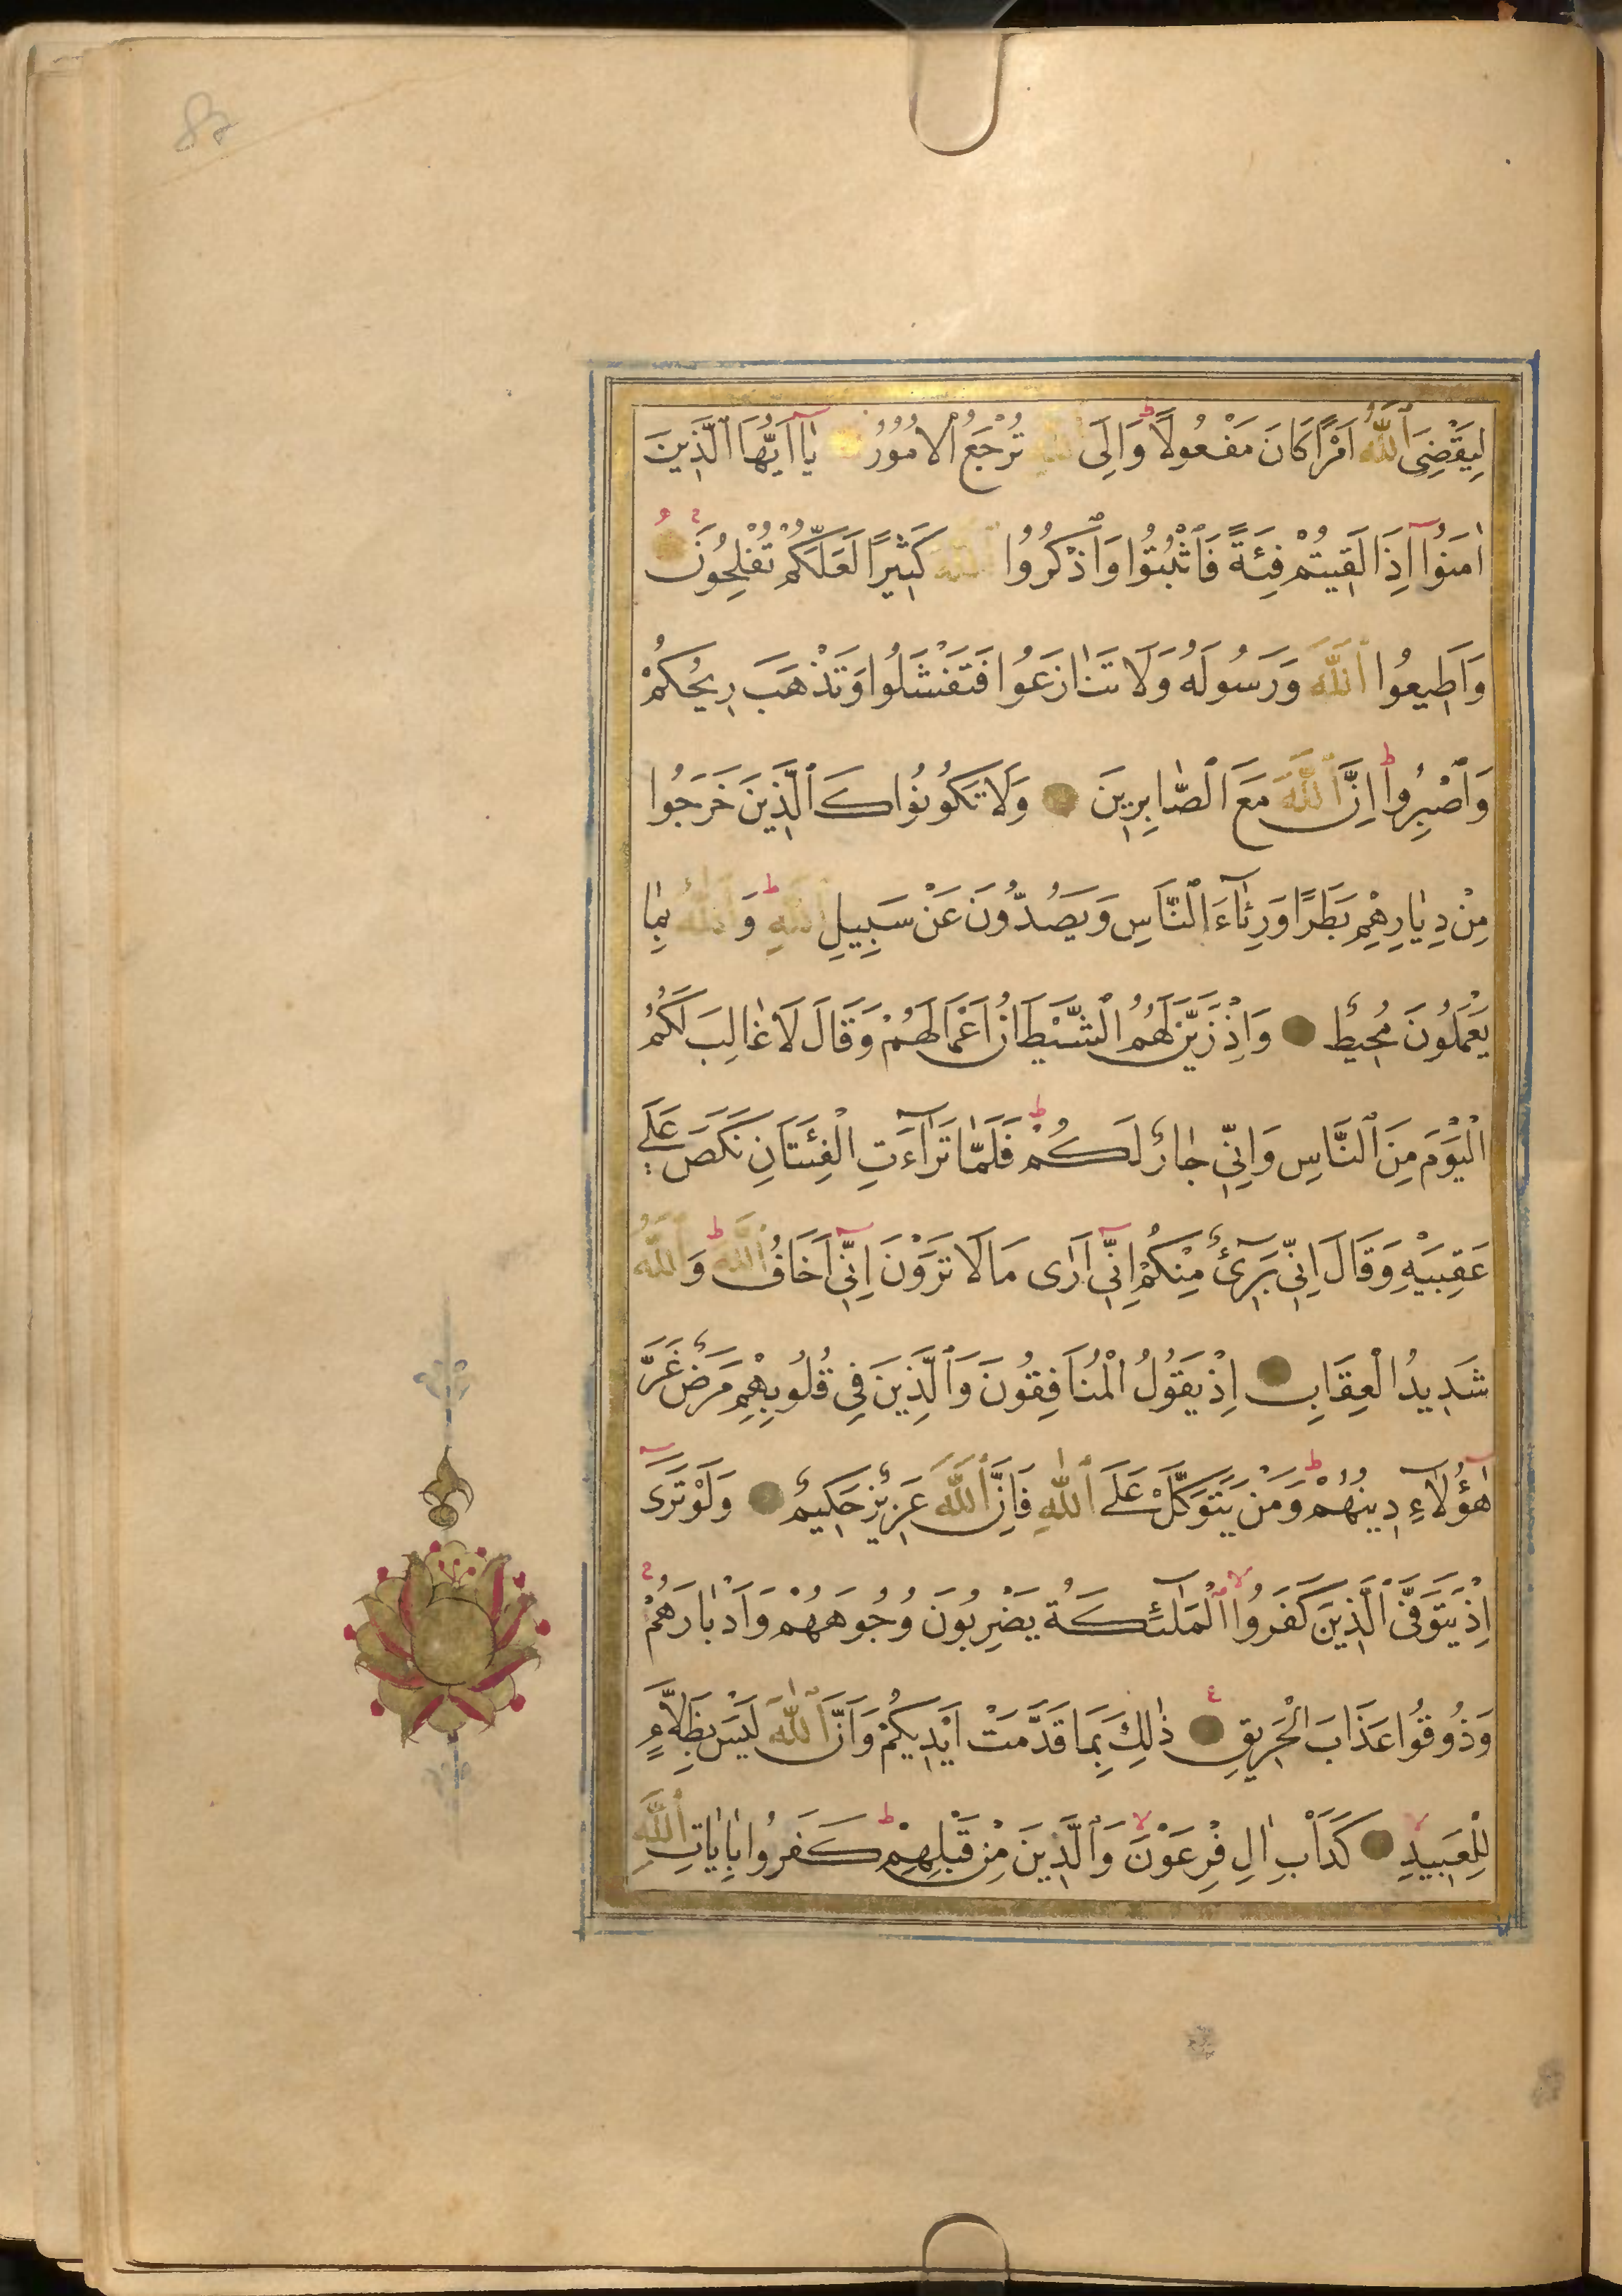 87
لِيَقْضِىَ ٱللّٰهُ اَمْرًا كَانَ مَفْعُولًا ط وَاِلَى ٱللّٰهِ تُرْجَعُ الْاُمُورُ يٰٓا اَيُّهَا ٱلَّذٖينَ
اٰمَنُٓوا اِذَا لَقٖيتُمْ فِئَةً فَاثْبُتُوا وَٱذْكُرُوا ٱللّٰهَ كَثٖيرًا لَعَلَّكُمْ تُفْلِحُونَ
وَاَطٖيعُوا ٱللّٰهَ وَرَسُولَهُ وَلَا تَنٰازَعُوا فَتَفْشَلُوا وَتَذْهَبَ رٖيحُكُمْ
وَٱصْبِرُوا ط اِنَّ ٱللّٰهَ مَعَ ٱلصّٰابِرٖينَ وَلَا تَكُونُوا كَٱلَّذٖينَ خَرَجُوا
مِنْ دِيٰارِهِمْ بَطَرًا وَرِئٰٓاءَ ٱلنَّاسِ وَيَصُدُّونَ عَنْ سَبٖيلِ ٱللّٰهِ ط وَٱللّٰهُ بِمٰا
يَعْمَلُونَ مُحٖيطٌ وَاِذْ زَيَّنَ لَهُمُ الشَّيْطَانُ اَعْمَالَهُمْ وَقَالَ لَا غٰالِبَ لَكُمُ
الْيَوْمَ مِنَ ٱلنَّاسِ وَاِنّٖى جٰارٌ لَكُمْ ط فَلَمّٰا تَرَٓاءَتِ الْفِئَتَانِ نَكَصَ عَلٰى
عَقِبَيْهِ وَقَالَ اِنّٖى بَرٖٓئٌ مِنْكُمْ اِنّٖٓى اَرٰى مَا لَا تَرَوْنَ اِنّٖٓى اَخَافُ ٱللّٰهَ ط وَٱللّٰهُ
شَدٖيدُ الْعِقَابِ اِذْ يَقُولُ الْمُنَافِقُونَ وَٱلَّذٖينَ فٖى قُلُوبِهِمْ مَرَضٌ غَرَّ
هٰٓؤُلَٓاءِ دٖينُهُمْ ط وَمَنْ يَتَوَكَّلْ عَلَى ٱللّٰهِ فَاِنَّ ٱللّٰهَ عَزٖيزٌ حَكٖيمٌ وَلَوْ تَرٰٓى
اِذْ يَتَوَفَّى ٱلَّذٖينَ كَفَرُوا لا ٱلْمَلٰٓئِكَةُ يَضْرِبُونَ وُجُوهَهُمْ وَاَدْبٰارَهُمْ
وَذُوقُوا عَذَابَ الْحَرٖيقِ ذٰلِكَ بِمَا قَدَّمَتْ اَيْدٖيكُمْ وَاَنَّ ٱللّٰهَ لَيْسَ بِظَلَّامٍ
لِلْعَبٖيدِ لا كَدَاْبِ اٰلِ فِرْعَوْنَ لا وَٱلَّذٖينَ مِنْ قَبْلِهِمْ ط كَفَرُوا بِاٰيٰاتِ ٱللّٰهِ